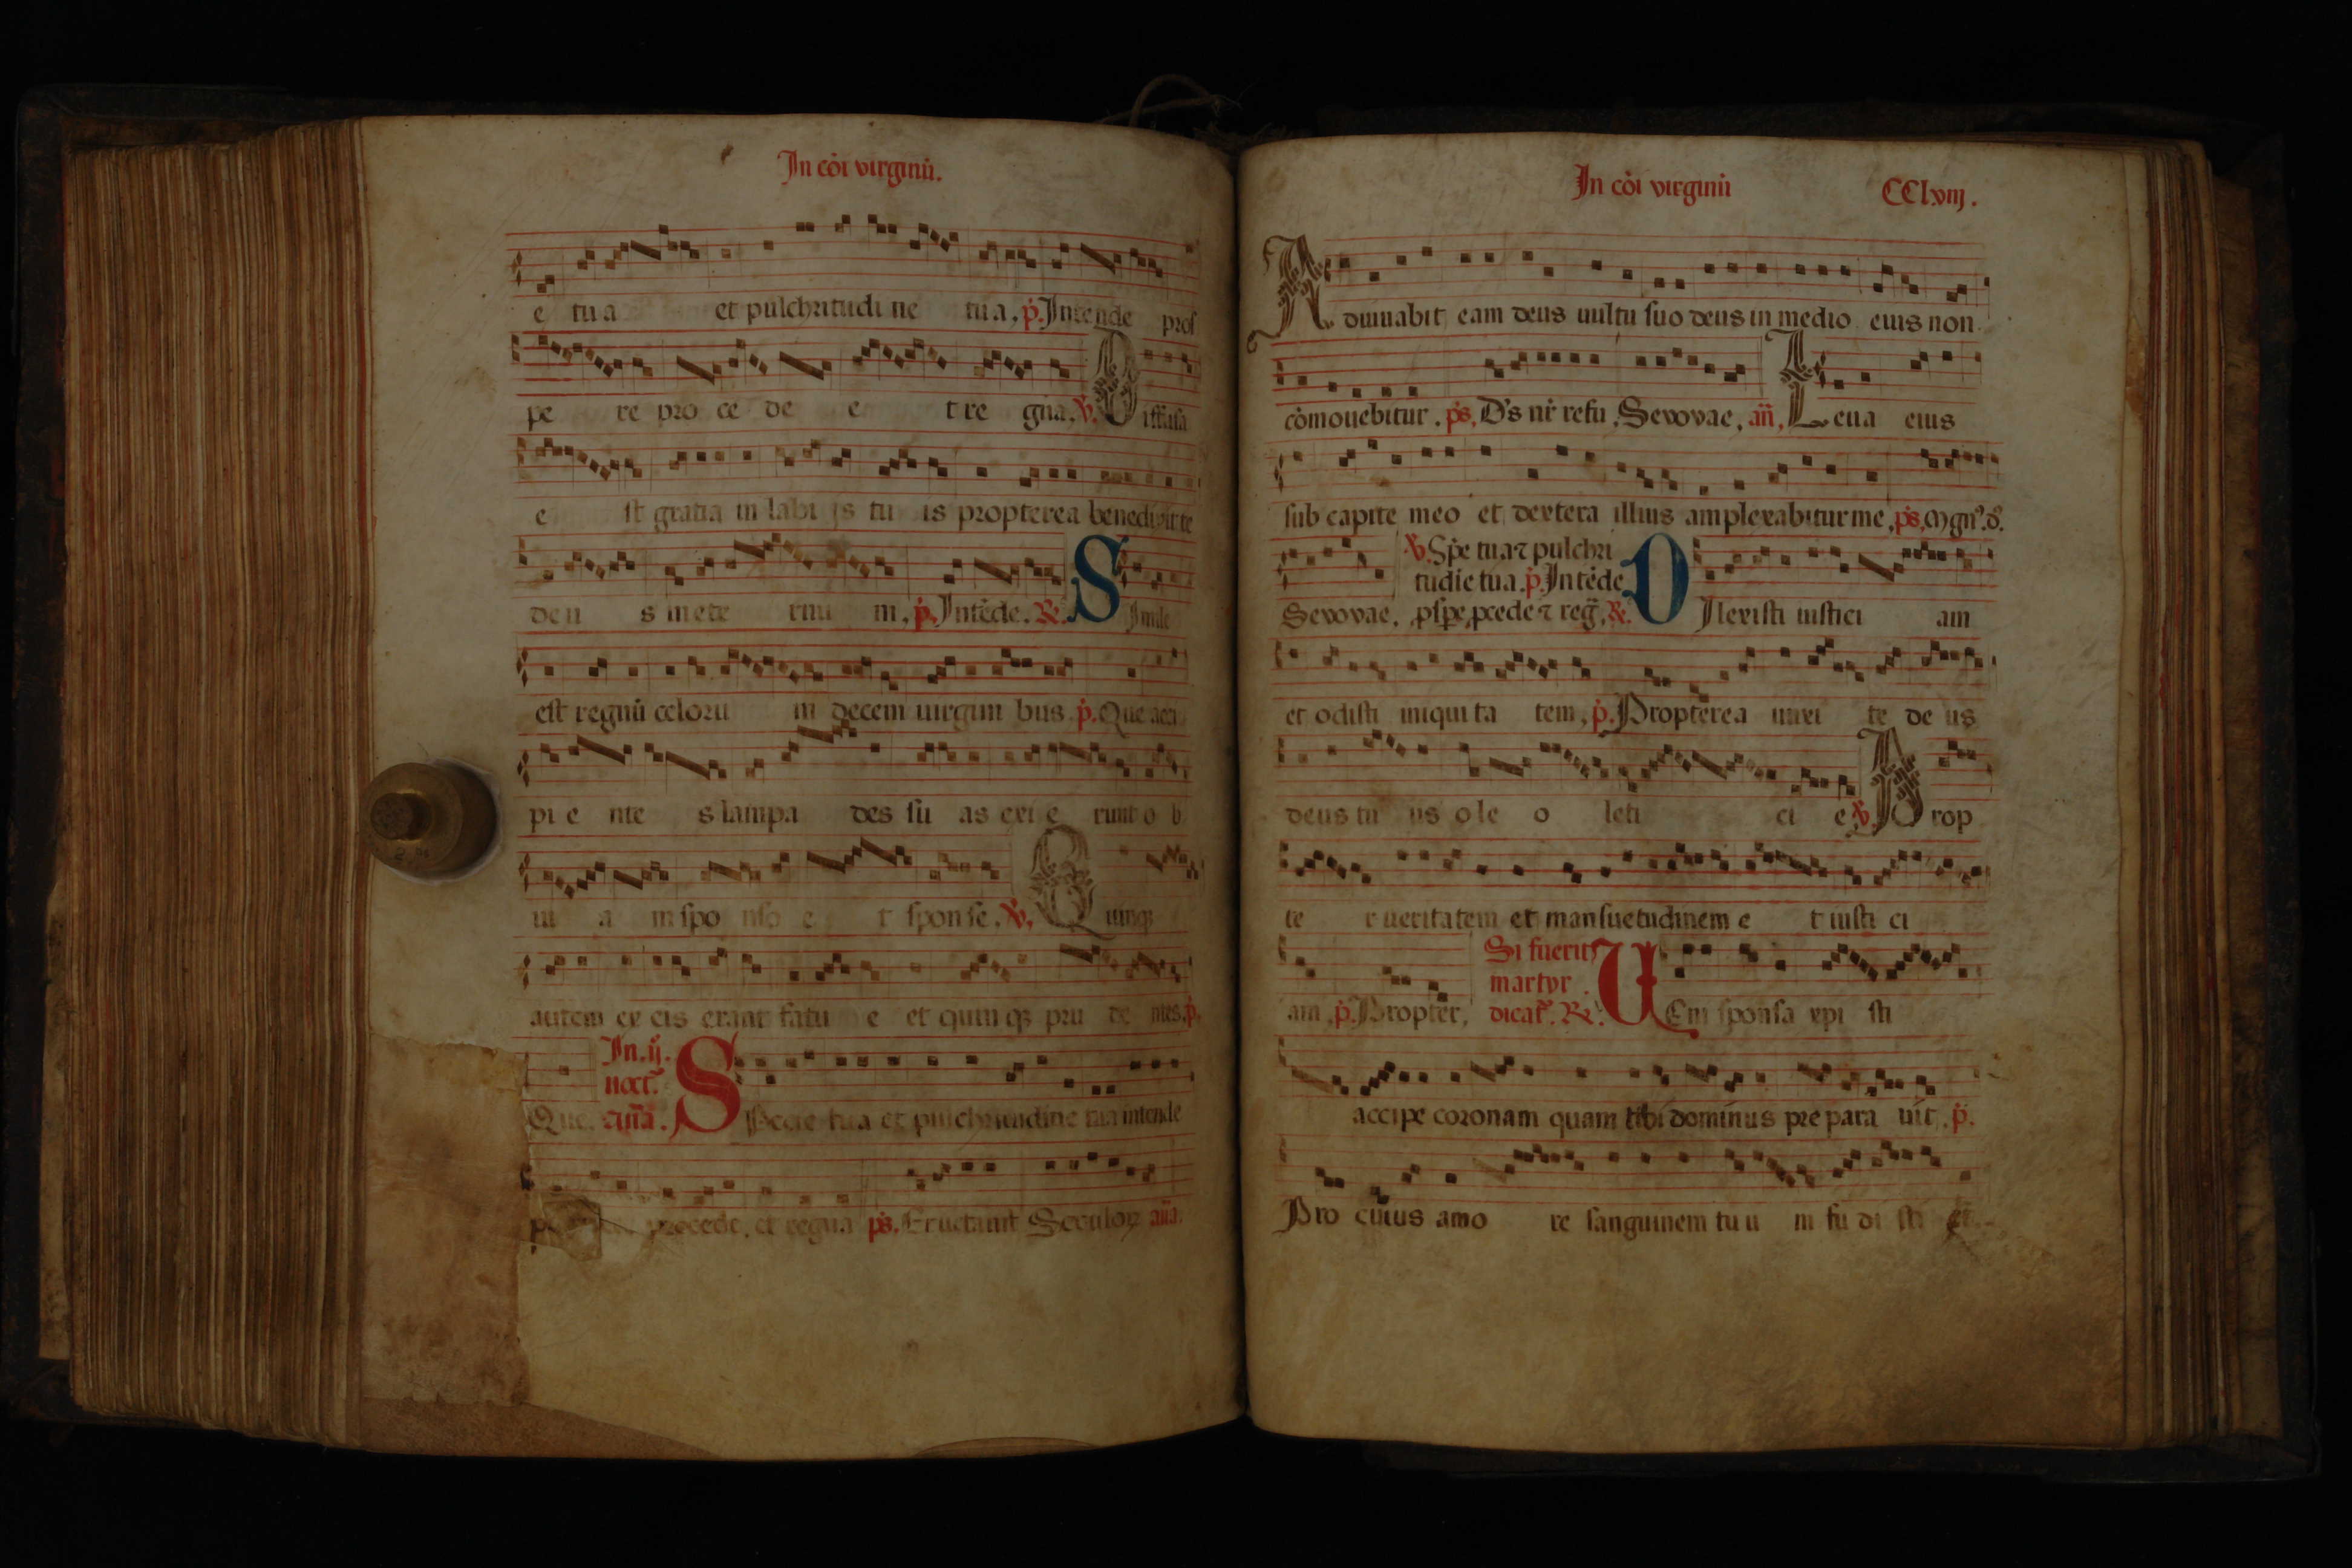 In cōi virginū.
e tua et pulchritudi ne tua. p̄. Intende prof
pe re pro ce de e t re gna. ꝟ. Diffusa
e st gratia in labi js tu is propterea benedixit te
deu s in ete rnu m. p̄. Intēde. ℟. Simile
est regnū celoru m decem uirgini bus. p̄. Que acci
pi e nte s lampa des su as exi e runt o b
ui a m spo nso e t sponse. ꝟ. Quinqꝫ
autem ex eis erant fatu e et quin qꝫ pru de ntes. p̄.
In .ij.
noct.
Que. aña. Specie tua et pulchritudine tua intende
procede, et regna ps. Eructauit Seculoꝝ aña.
In cōi virginū CClviij.
Adiuuabit eam deus uultu suo deus in medio eius non
cōmouebitur. ps. D's nr̄ refu. Sevovae, añ, Leua eius
sub capite meo et dextera illius amplexabitur me, ps, Mgn̄. d̄.
ꝟ. Sp̄e tua ⁊ pulchri
tudīe tua. p̄. Intēde
Sevovae, ꝓsꝑe, ꝓcede ⁊ reg̃, ℟. DIlexisti iustici am
et odisti iniqui ta tem, p̄. Propterea unxi te de us
deus tu us o le o leti ci e ꝟ. Prop
te r ueritatem et mansuetudinem e t iusti ci
Si fuerit
martyr.
am, p̄. Propter, dicat̄. ℟. VEni sponsa xpi sti
accipe coronam quam tibi dominus pre para uit, p̄.
Pro cuius amo re sanguinem tu u m fu di sti et